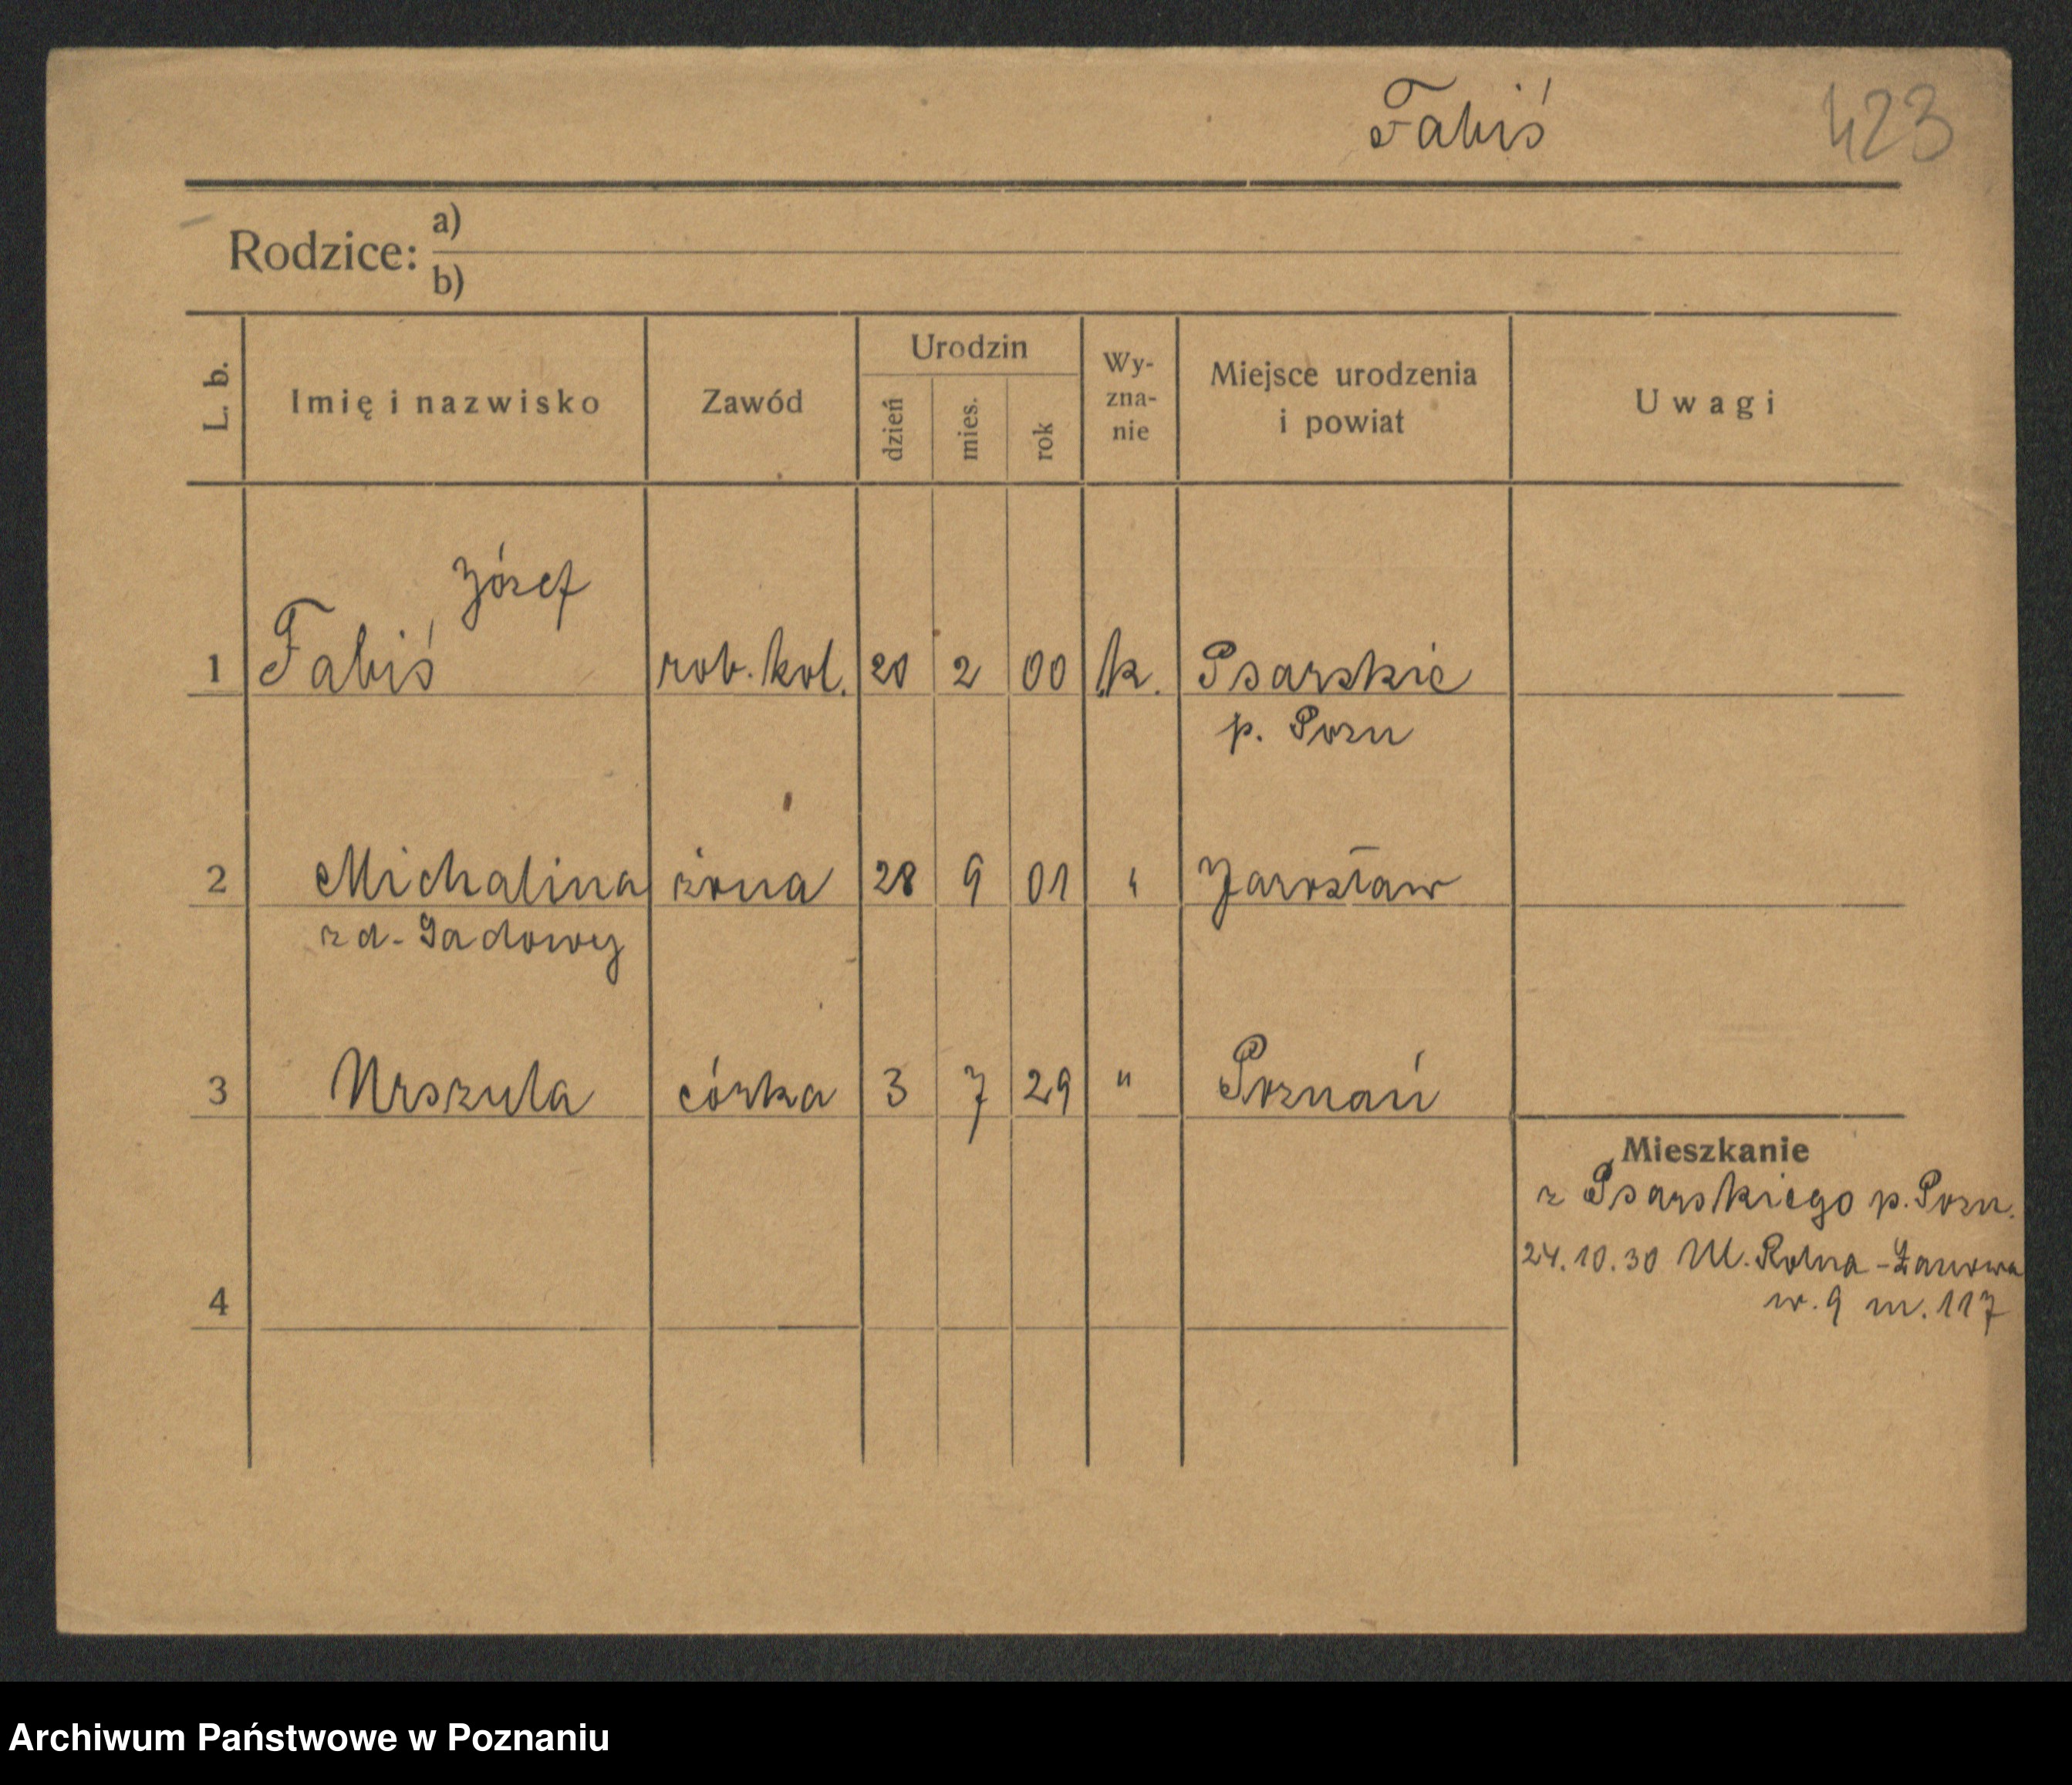 Fabiś 423
Rodzice: a)
b)
L. b. Imię i nazwisko Zawód Urodzin dzień mies. rok Wy-zna-nie Miejsce urodzenia i powiat Uwagi
Józef
1 Fabiś rob. kol. 20 2 00 k. Psarskie
p. Pozn
2 Michalina żona 28 9 01 " Jarosław
zd- Gadowy
3 Urszula córka 3 7 29 " Poznań
Mieszkanie
z Psarskiego p. Pozn.
24.10.30 Ul. Rolna -
4
nr. 9 m. 117
Archiwum Państwowe w Poznaniu